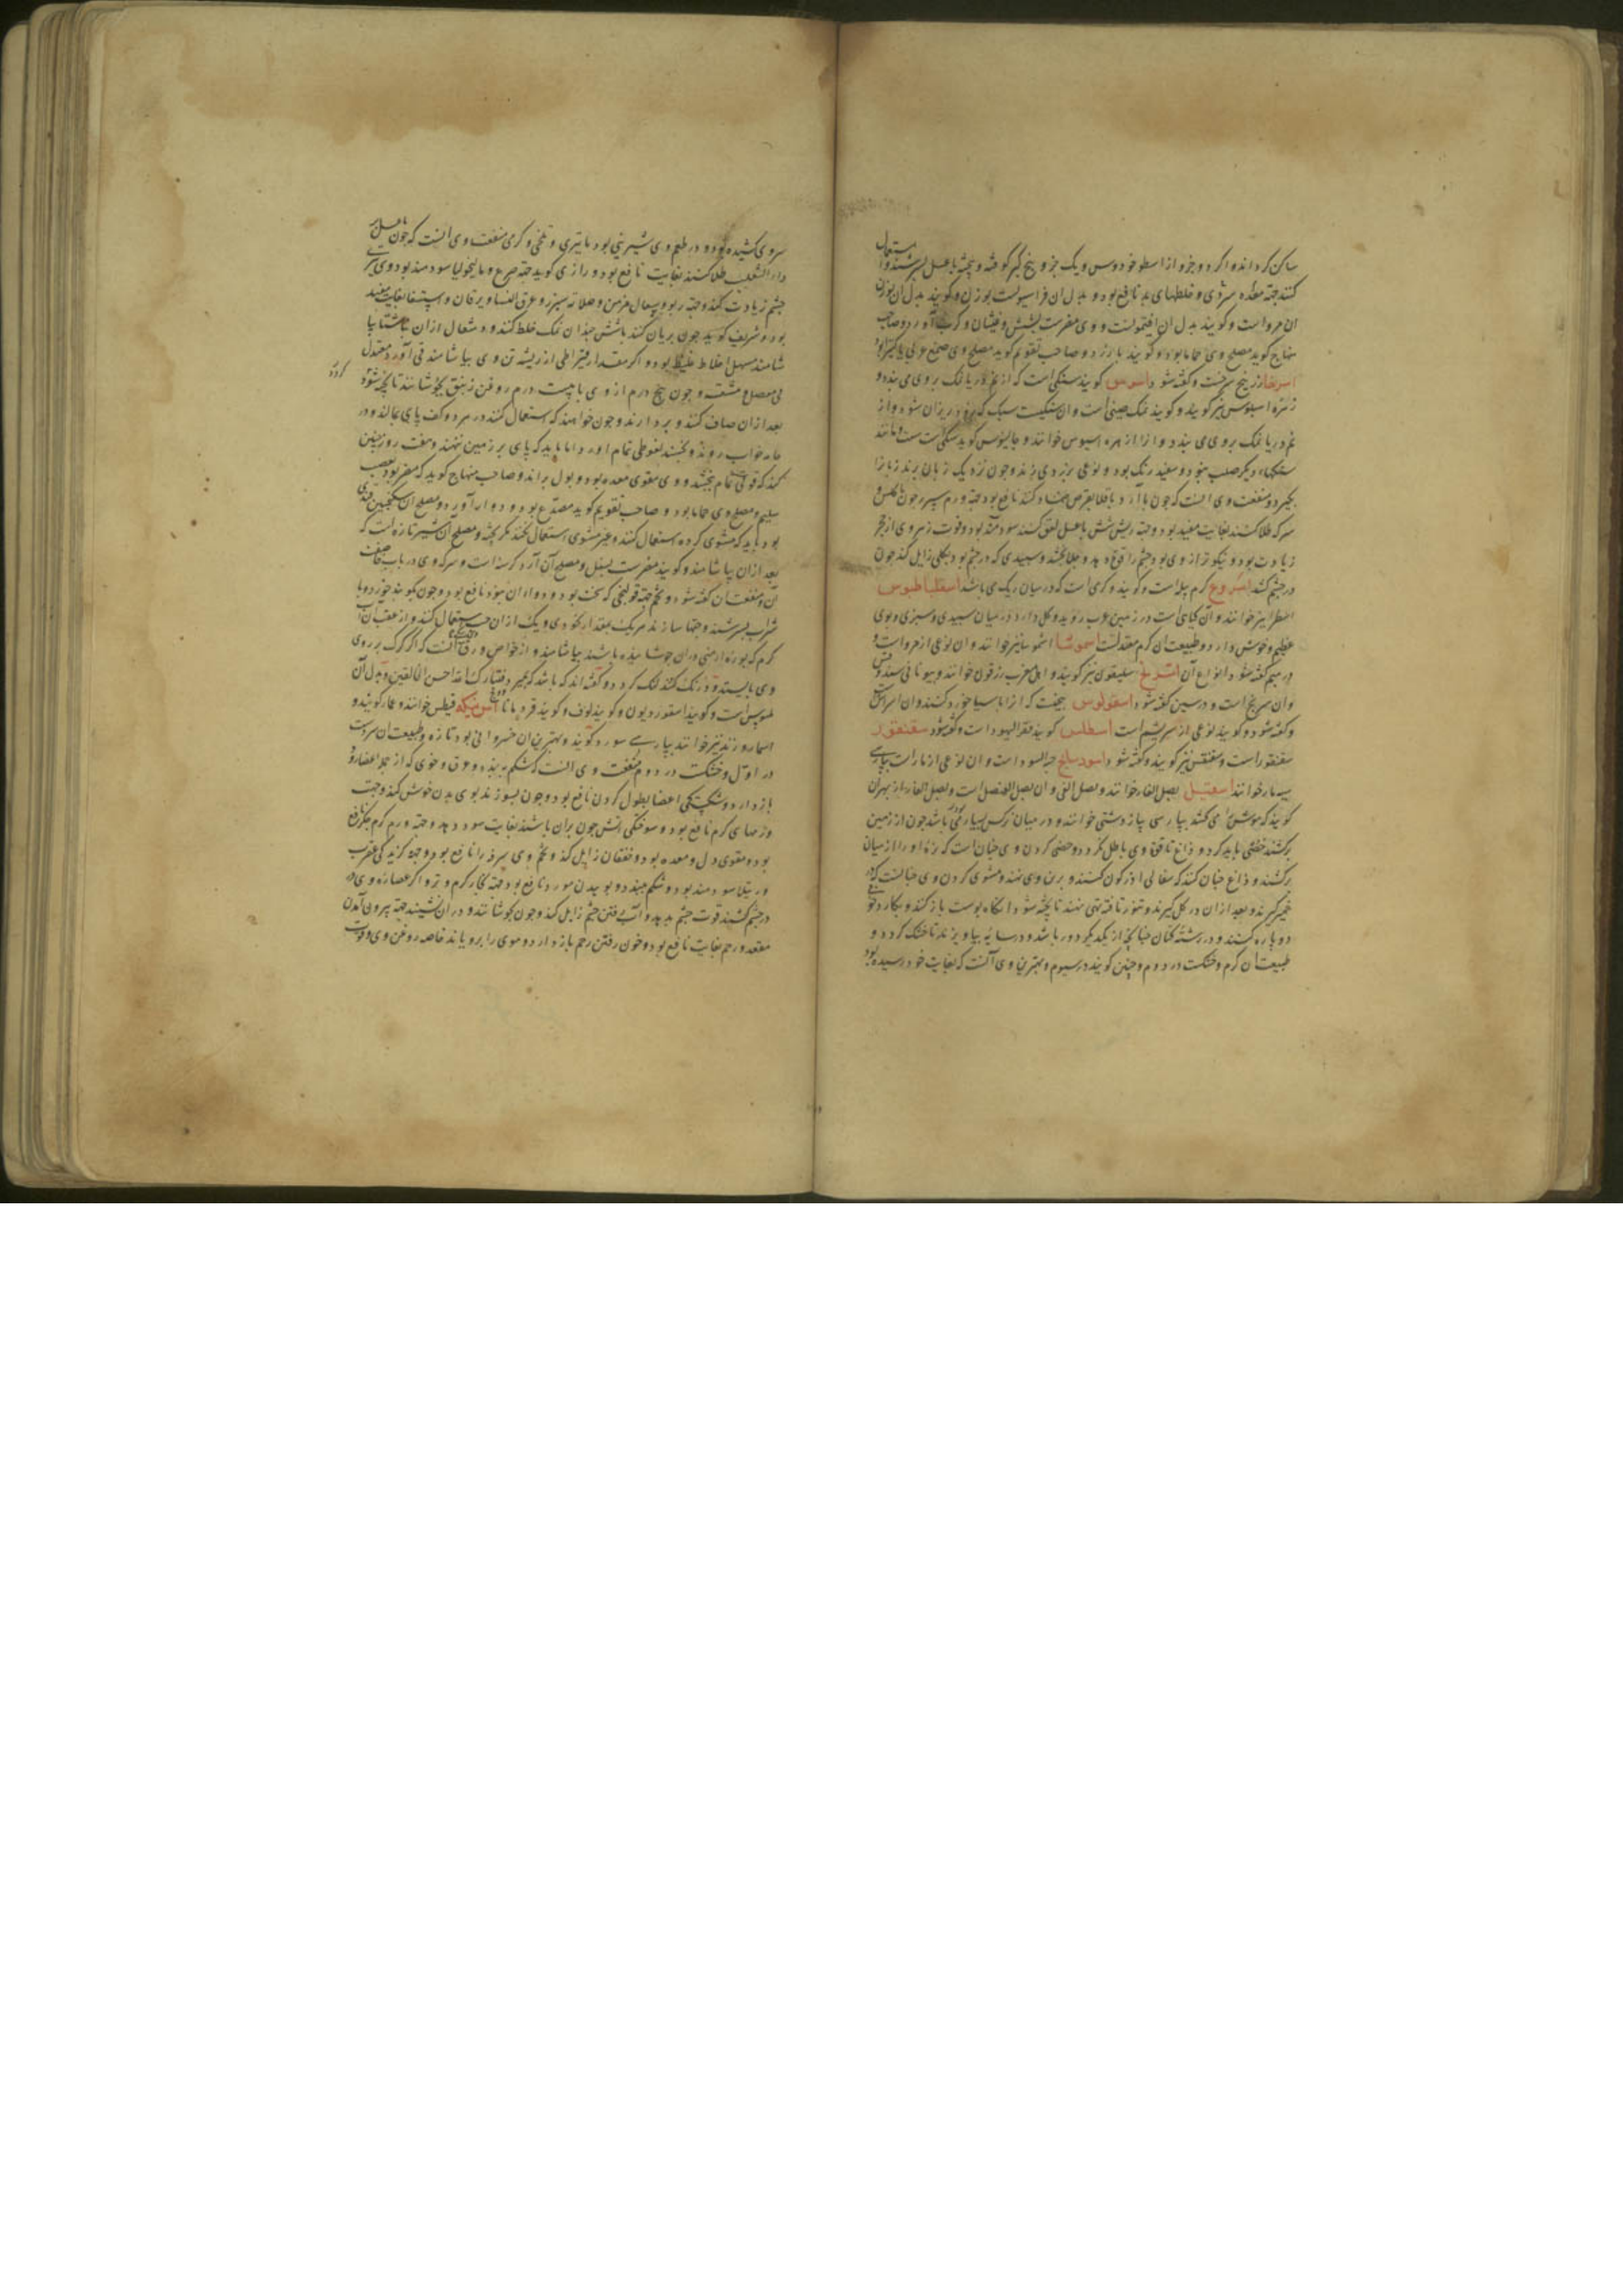 ساکن کرداند و اگر دو جزو از اسطوخودوس و یک جزو بیخ کبر کوفته و بیخته باعسل بسرشند و استعمال
کنند جهة معده سردی و خلطهای بد نافع بود و بدل ان فراسیونست بوزن و کویند بدل ان بوزن
ان مرو است و کویند بدل ان افتیمونست و وی مضرست بشش و غثیان و کرب آورد و صاحب
منهاج کوید مصلح وی حماما بود و کویند بارزد و صاحب تقویم کوید مصلح وی صمغ عربی یا کتیرا بود
زرنیخ سرخست و کفته شود اسیوس کویند سنکی است که از نم دریا نمک بروی می بندد و
زهره اسیوس نیز کویند و کویند نمک چینی است و ان سنکیست سبک که زود ریزان شود و از
نم دریا نمک بروی می بندد و ازا زهره اسیوس خوانند و جالینوس کوید سنکی است سست و مانند
سنکهاء دیکر صلب نبود و سفید رنک بود و نوعی بزردی زند و چون نزدیک زبان برند زبانرا
بکیرد و منفعت وی انست که چون با آرد باقلا بنقرس ضماد کنند نافع بود جهة ورم سپرز چون با کلس و
سرکه طلا کنند بغایت مفید بود و جهة ریش شش باعسل لعق کنند سودمند بود و قوت زهره وی از حجر
زیادت بود و نیکوتر از وی بود چشم را قوة دهد و جلا بخشد و سپیدی که در چشم بود بکلی زایل کند چون
در چشم کشند اسروع کرم پیله است و کویند و کرمی است که در میان ریک می باشد اسقلیاطوس
اسطراتیز خوانند و آن کیاهی است در زمین عرب روید و کل دارد در میان سپیدی و سبزی و بوی
عظیم و خوش دارد و طبیعت ان کرم معتدلست اسموسا اشموسا نیز خوانند و ان نوعی از مرو است و
در میم کفته شود انواع آن اسرنج سلیقون نیز کویند و اهل مغرب زرقون خوانند و بیونانی سندوقس
و ان سرنج است و در سین کفته شود اسقولوس بیخست که ازا باسیا خورد کنند و ان اسراش است
و کفته شود و کویند نوعی از سریشم است اسطلس کویند قفرالیهود است و کفته شود سقنقور
سقنقور است و سقنقس نیز کویند و کفته شود اسود سالخ حیة السودا است و ان نوعی از مار است بپارسی
سیه مار خوانند اسقیل بصل الفار خوانند و بصل القی و ان بصل العنصل است و بصل الفار از بهر ان
کویند که موش را می کشد بپارسی پیاز دشتی خوانند و در میان نرکس بسیار می باشد چون از زمین
برکشند
برکشند و داغ چنان کنند که سفالی اذرکون کنند و برین وی نهند و مشوی کردن وی چنانست که در
خمیر کیرند و بعد ازان در کل کیرند و تنور تافته تهی نهند تا پخته شود انکاه پوست باز کنند و بکارد
دوپاره کنند و در رشتهٔ کتان چنانچه از یکدیکر دور باشد و در سایه بیاویزند تا خشک کردد و
طبیعت ان کرم و خشکست در دوم و چنین کویند در سیوم و بهترین وی آنست که بغایت خود رسیده بود
سروی کشیده بود و در طعم وی شیرینی بود با تیزی و تلخی و کرمی منفعت وی انست که چون باعسل بر
داء الثعلب طلا کنند بغایت نافع بود و رازی کوید جهة صرع و مالیخولیا سودمند بود و وی
چشم زیادت کند و جهة ربو و سعال مزمن و صلابة سپرز و عرق النسا و یرقان و استسقا بغایت مفید
بود و شریف کوید چون بریان کنند باشش چندان نمک خلط کنند و دو مثقال ازان بناشتا بیا
شامند مسهل اخلاط غلیظ بود و اکر مقدار قیراطی از ریشه تن وی بیاشامند قی آورد معتدل
بی مشقت و چون پنج درم از وی با بیست درم روغن زنبق بجوشانند تا پخته شود
کردد
بعد ازان صاف کنند و بردارند و چون خواهند که استعمال کنند در هر دو کف پای بمالند و در
جامه خواب روند و بخسبند نعوظی تمام آورد اما باید که پای بر زمین ننهند و هفت روز چنین
کنند که قوتی تمام بخشد و وی مقوی معده بود و بول براند و صاحب منهاج کوید که مضر بود بعصب
سلیم و مصلح وی حماما بود و صاحب تقویم کوید مصدع بود و دوار آورد و مصلح ان سکنجبین قندی
بود باید که مشوی کرده استعمال کنند و غیر مشوی استعمال نکنند مکر پخته و مصلح ان شیر تازه است که
بعد ازان بیاشامند و کویند مضرست بسفل و مصلح آن آرد کرسنه است و سرکه وی در باب
آن و منفعت ان کفته شود و تخم جهة قولنجی که سخت بود و دواء ان نبود نافع بود چون بکوبند خورد و با
شراب بسرشند و حبها سازند هر یک مقدار نخودی و یک ازان حب استعمال کنند و از عقب آن آب
کرم که بوره ارمنی در ان جوشانیده باشند بیاشامند و از خواص ورق وی آنست که اکر کرک بر روی
وی بایستد و درنک کند لنک کردد و کفته اند که باشد که بمیرد فتبارک الله احسن الخالقین و بدل آن
بلبوس است و کویند اسقوردیون و کویند لوف و کویند قردمانا آس بستکه قیطس خوانند و عمار کویند و
اسمار و رند نیز خوانند بپارسی مورد کویند و بهترین ان خسروانی بود تازه و طبیعت ان سردست
در اول و خشکست در دوم منفعت وی انست که شکم ببندد و عرق و خونی که از جملهٔ اعضا رود
باز دارد و شکستکی اعضا بطول کردن نافع بود و چون بسوزند بوی بدن خوش کند و جهت
ورمهای کرم نافع بود و سوختکی آتش چون بران باشند بغایت سود دهد و جهة ورم کرم جکر نافع
بود و مقوی دل و معده بود و خفقان زایل کند و تخم وی سرفه را نافع بود و جهة کزیدکی عقرب
و رتیلا سودمند بود و شکم ببندد و بوییدن مورد نافع بود جهة بخار کرم و تر و اکر عصارهٔ وی در
در چشم کشند قوت چشم بدهد و آب رفتن چشم زایل کند و چون بجوشانند و در ان نشینند جهة بیرون آمدن
مقعد و رحم بغایت نافع بود و خون رفتن رحم باز دارد و موی را برویاند خاصه روغن وی و قوت